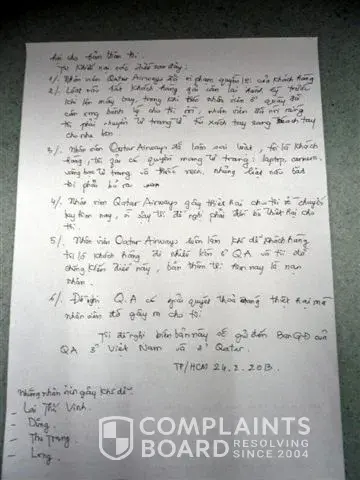 tôi cho bản thân tôi.
Tôi khiếu nại các điều sau đây:
1/. Nhân viên Qatar Airways đã vi phạm quyền lợi của khách hàng
2/. hành lý trước
khi lên máy bay, trong khi tôi nhân viên ở quầy đã
cân xong hành lý cho tôi, nhân viên đó nói rằng
tôi phải chuyển từ trang từ túi xách tay sang tay
cho nhẹ bớt
3/. Nhân viên Qatar Airways đã làm sai luật, tôi là khách
hàng, tôi có quyền mang tư trang: laptop, camera,
vòng bạc tư trang và thức
tôi phải bỏ ra
4/. Nhân viên Qatar Airways gây thiệt hại cho tôi về chuyến
bay hôm nay, vì vậy tôi đề nghị phải đền bù thiệt hại cho
tôi.
5/. Nhân viên Qatar Airways luôn luôn khi dễ khách hàng
tôi là khách hàng đi nhiều lần ở QA và tôi đã
chứng kiến điều này, bản thân tôi hôm nay là nạn
nhân.
6/. Đề nghị Q.A có giải quyết thỏa đáng thiệt hại mà
nhân viên đó gây ra cho tôi
Tôi đề nghị biên bản này sẽ gửi đến Ban GĐ của
QA ở Việt Nam và ở Qatar.
TP/HCM 24.2.2013.
Những nhân viên gây khi dễ
- Lại Thế Vinh.
- Dũng.
- Thu Trang.
- Long.
COMPLAINTS
BOARD
RESOLVING
SINCE 2004